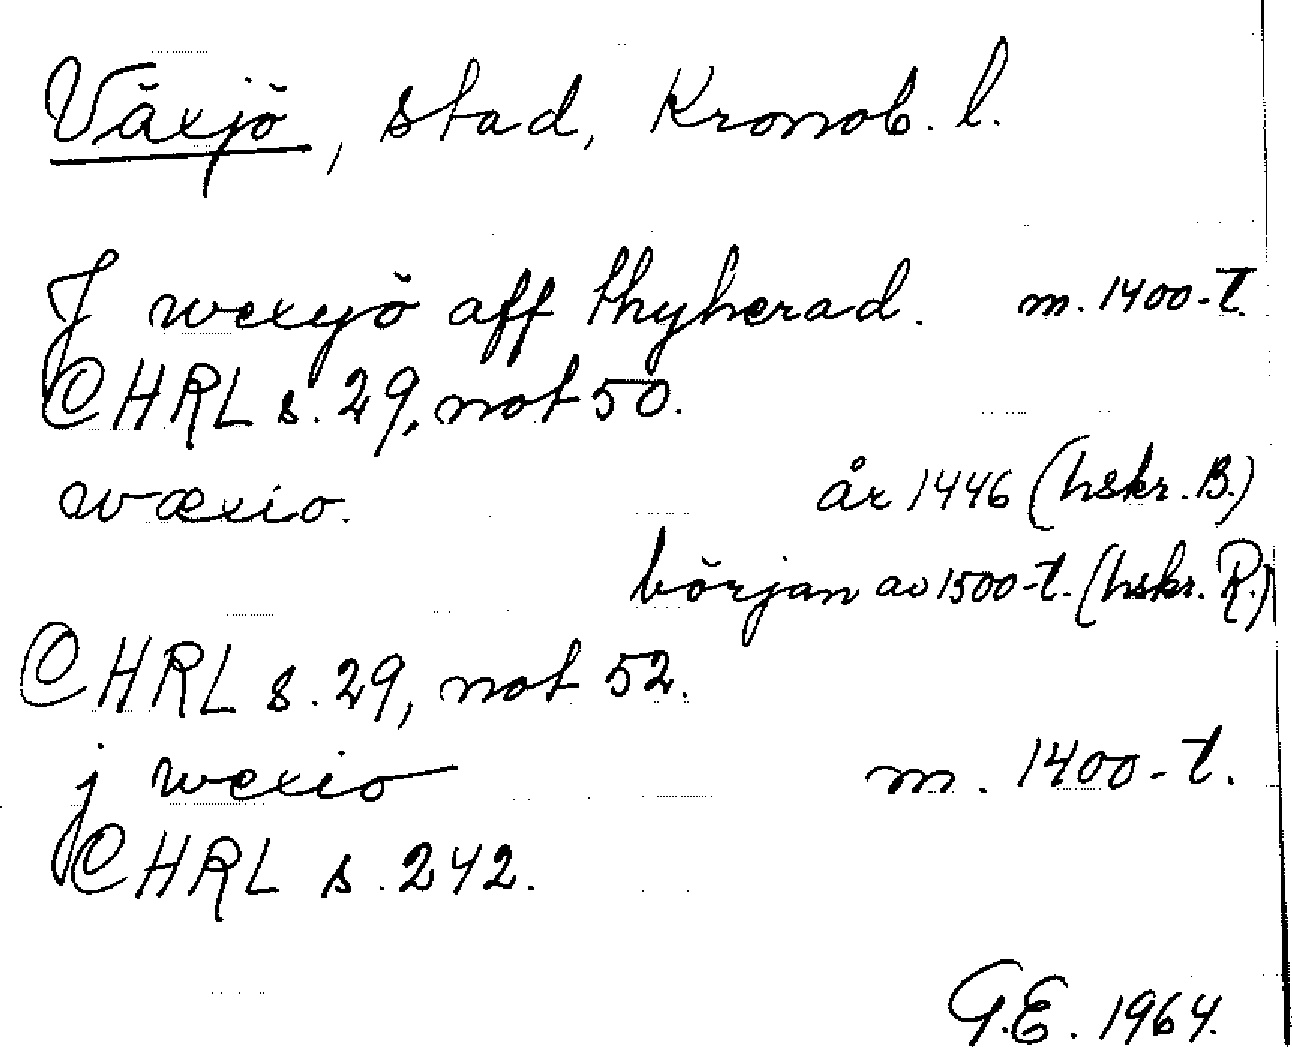 Växjö, stad, Kronob. l.
J wexyö aff thyherad. m. 1400-t.
CHRL s. 29, not 50.
wæxio. år 1446 (hskr. B.)
början av 1500-t. (hskr. R.)
CHRL s. 29, not 52.
j wexio m. 1400-t.
CHRL s. 242.
G.E. 1964.